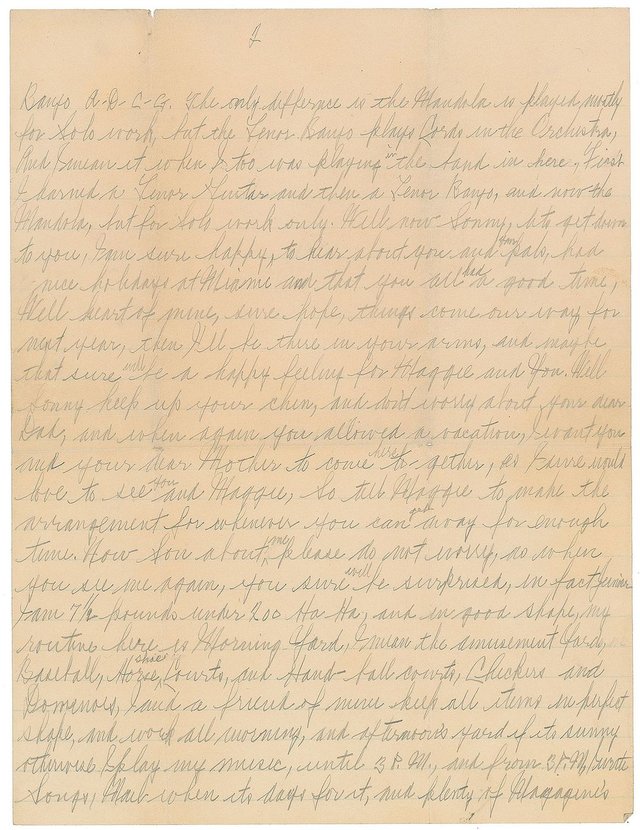 2
Banjo A-D-C-G. The only differnce is the Mandola is played mostly
for Solo work, but the Tenor Banjo plays Cords in the Orchestra,
And I mean it when I too was playing in the band in here, First
I larned a Tenor Guetar and then a Tenor Banjo, and now the
Mandola, but for Solo work only. Well now Sonny, lets get down
to you, I am sure happy, to hear about you and your pals, had
nice holidays at Miami and that you all had a good time,
Well heart of mine, sure hope, things come our way for
next year, then I'll be there in your arms, and maybe
that sure will be a happy feeling for Maggie and You. Well
Sonny keep up your chin, and dont worry about your dear
Dad, and when again you allowed a vacation, I want you
and your dear Mother to come here to-gether, as I sure would
love to see you and Maggie, So tell Maggie to make the
arrangement for whenever you can get away for enough
time. Now Son about me, please do not worry, as when
you see me again, you sure will be surprised, in fact Junior
I am 7½ pounds under 200 Ha Ha, and in good shape, my
routine here is Morning Yard, I mean the amusement Yard,
Baseball, Horse shoe Courts, and Hand ball courts, Checkers and
Domenoes, I and a friend of mine keep all items in perfect
shape, and work all morning, and afternoon's yard if its sunny
otherwise I play my music, until 3 P.M., and from 3 P.M, I write
Songs, Mail when its days for it, and plenty of Magazine's